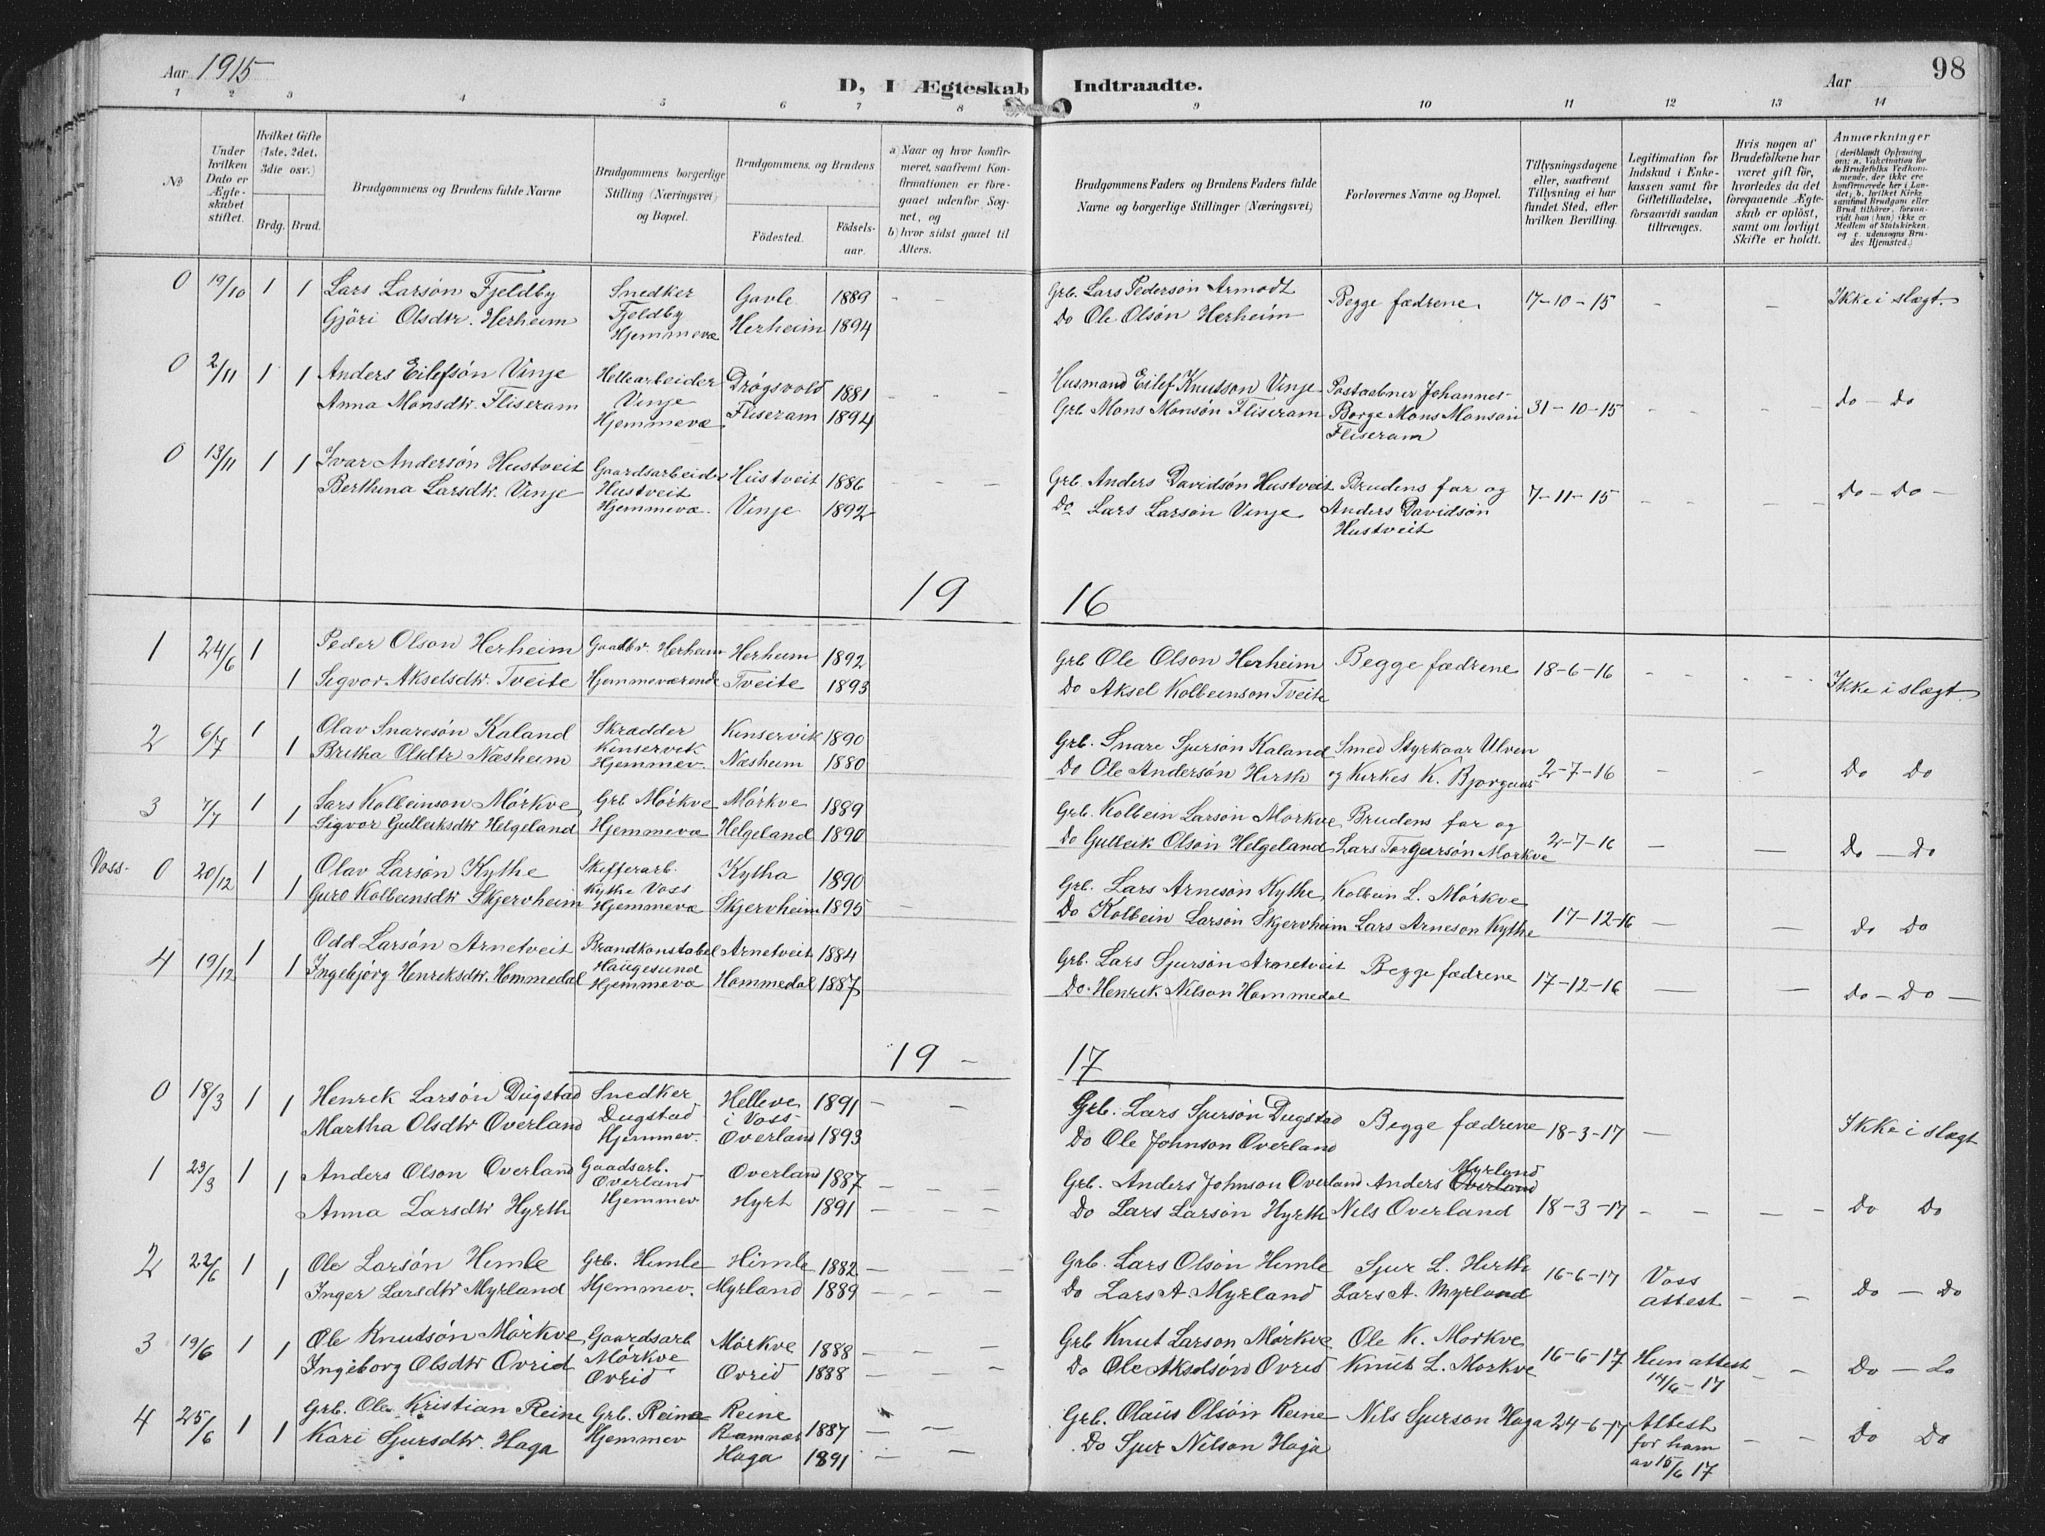 Aar 1915
D, I Ægteskab Indtraadte.
Aar
98
1 2 3 4 5 6 7 8 9 10 11 12 13 14
No
Under hvilken Dato er Ægteskabet stiftet.
Hvilket Gifte (1ste, 2det, 3die osv.)
Brdg. Brud.
Brudgommens og Brudens fulde Navne
Brudgommens borgerlige Stilling (Næringsvei) og Bopæl.
Brudgommens og Brudens
Fødested.
Fødselsaar.
a) Naar og hvor konfirmeret, saafremt Konfirmationen er foregaaet udenfor Sognet, og
b) hvor sidst gaaet til Alters.
Brudgommens Faders og Brudens Faders fulde Navne og borgerlige Stillinger (Næringsvei)
Forlovernes Navne og Bopæl.
Tillysningsdagene eller, saafremt Tillysning ei har fundet Sted, efter hvilken Bevilling.
Legitimation for Indskud i Enkekassen samt for Giftetilladelse, forsaavidt saadan tiltrænges.
Hvis nogen af Brudefolkene har været gift før, hvorledes da det foregaaende Ægteskab er opløst, samt om lovligt Skifte er holdt.
Anmærkninger (deriblandt Oplysning om: a. Vakcination for de Brudefolks Vedkommende, der ikke ere konfirmerede her i Landet; b. hvilket Kirkesamfund Brudgom eller Brud tilhører, forsaavidt han (hun) ikke er Medlem af Statskirken, og c. udensogns Brudes Hjemsted.)
0 19/10 1 1 Lars Larsøn Fjeldby Snedker Gavle 1889 - - Grb. Lars Pedersøn Armodt Begge fædrene 17-10-15 - - Ikke i slægt.
Gjöri Olsdtr. Herheim Fjeldby Hjemmevæ Herheim 1894 Do Ole Olsøn Herheim
0 2/11 1 1 Anders Eilefsön Vinje Hellearbeider Drøgsvold 1881 Husmand Eilef Knutson Vinje Postaabner Johannes 31-10-15 Do - Do
Anna Monsdtr. Fliseram Vinje Hjemmevæ Fliseram 1894 Grb. Mons Monsön Fliseram Borge Mons Monsön
Fliseram
0 13/11 1 1 Ivar Andersön Hustveit Gaardsarbeider Hustveit 1886 Grb. Anders Davidsön Hustveit Brudens far og 7-11-15 Do - Do -
Berthina Larsdtr. Vinje Hustveit Hjemmevæ. Vinje 1892 Do Lars Larsön Vinje Anders Davidsön
Hustveit
19 16
1 24/6 1 1 Peder Olson Herheim Gaadbr. Herheim Herheim 1892 Grb Ole Olson Herheim Begge fædrene 18-6-16 Ikke i slægt
Sigvor Akselsdtr. Tveite Hjemmeværende Tveite 1893 Do Aksel Kolbeinson Tveite
2 6/7 1 1 Olav Snaresön Kaland Skrædder Kinservik 1890 Grb. Snare Sjursön Kaland Smed Styrkaar Ulven 2-7-16 Do Do
Britha Olsdtr Næsheim Kinservik Hjemmev. Næsheim 1880 Do Ole Andersön Hirth og Kirkes K. Bjorgaas
3 7/7 1 1 Lars Kolbeinson Mörkve Grb Mörkve Mörkve 1889 Grb. Kolbein Larsön Mörkve Brudens far og 2-7-16 Do - Do
Sigvor Gulleiksdtr Helgeland Hjemmevæ Helgeland 1890 Do Gulleik Olsön Helgeland Lars Torgeirsön Mörkve
Voss- 0 20/12 1 1 Olav Larsön Kythe Skifferarb. Kytha 1890 Grb. Lars Arnesön Kythe Kolbein L. Mörkve 17-12-16 Do Do
Guro Kolbeinsdtr Skjervheim Kythe Voss Hjemmevæ Skjervheim 1895 Do Kolbein Larsön Skjervheim Lars Arneson Kythe
4 19/12 1 1 Odd Larsön Arnetveit Brandkonstabel Arnetveit 1884 Grb. Lars Sjursön Arnetveit Begge fædrene 17-12-16 Do - Do -
Ingebjörg Henriksdtr. Hommedal Haugesund Hjemmevæ Hommedal 1887 Do. Henrik Nilson Hommedal
19 - 17
0 18/3 1 1 Henrik Larsön Dugstad Snedker Helleve 1891 Grb. Lars Sjursön Dugstad Begge fædrene 18-3-17 Ikke i slægt
Martha Olsdtr Overland Dugstad Hjemmev. i Voss Overland 1893 Do Ole Johnson Overland
1 23/3 1 1 Anders Olson Overland Gaadsarb. Overland 1887 Grb. Anders Johnson Overland Anders Overland Myrland 18-3-17 Do Do
Anna Larsdtr Hyrth Overland Hjemmev Hyrt 1891 Do Lars Larsön Hyrth Nils Overland
2 22/6 1 1 Ole Larsön Himle Grb. Himle Himle 1882 Grb. Lars Olsön Himle Sjur L. Hirth 16-6-17 Voss attest Do - Do
Inger Larsdtr Myrland Hjemmev. Myrland 1889 Do Lars A. Myrland Lars A. Myrland
3 19/6 1 1 Ole Knutsön Mörkve Gaardsarb Mörkve 1888 Grb Knut Larson Mörkve Ole K. Mörkve 16-6-17 Hun attest 14/6-17 Do - Do
Ingeborg Olsdtr Ovrid Mörkve Ovrid Ovrid 1888 Do Ole Akselsön Ovrid Knut L. Mörkve
4 25/6 1 1 Grb. Ole Kristian Reine Grb. Reine Reine 1887 Grb. Olaus Olsön Reine Nils Sjurson Haga 24-6-17 Attest for ham av 15/6 17 Do Do
Kari Sjursdtr. Haga Hjemmev Ramnæs Haga 1891 Do Sjur Nilson Haga